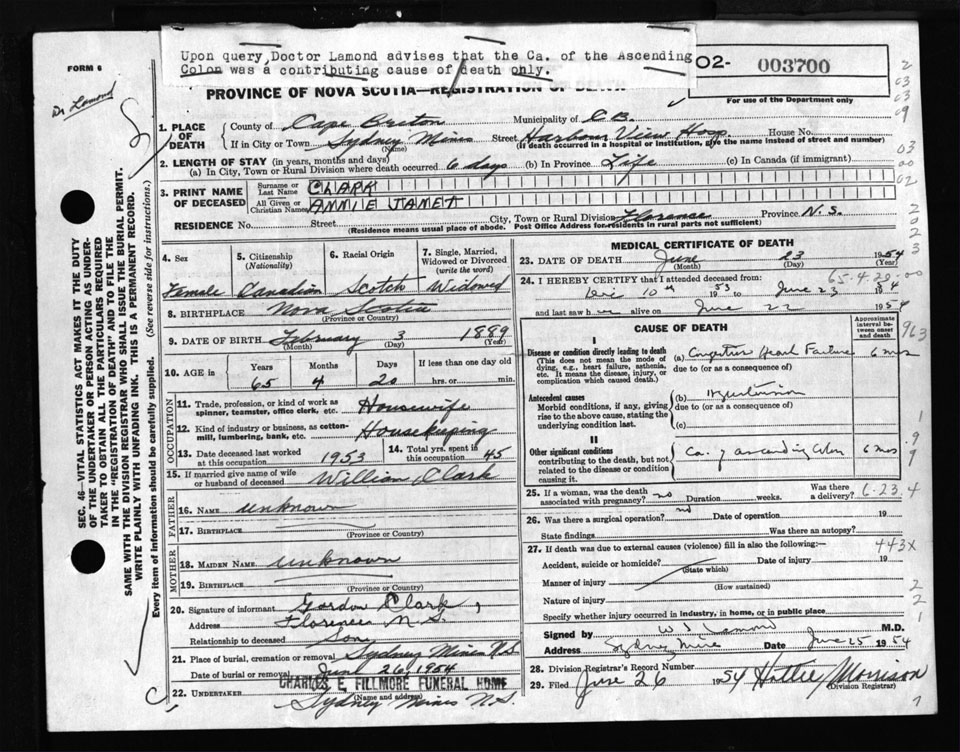 Upon query, Doctor Lamond advises that the Ca. of the Ascending
Colon was a contributing cause of death only.
FORM 6
Dr Lamond
02- 003700
PROVINCE OF NOVA SCOTIA—REGISTRATION OF DEATH
For use of the Department only
1. PLACE OF DEATH
County of Cape Breton Municipality of C.B.
If in City or Town Sydney Mines Street Harbour View Hosp. House No.
(Name) (If death occurred in a hospital or institution, give the name instead of street and number)
2. LENGTH OF STAY (in years, months and days)
(a) In City, Town or Rural Division where death occurred 6 days (b) In Province Life (c) In Canada (if immigrant)
3. PRINT NAME OF DECEASED
Surname or Last Name CLARK
All Given or Christian Names ANNIE JANET
RESIDENCE No. Street City, Town or Rural Division Florence Province N.S.
(Residence means usual place of abode. Post Office Address for residents in rural parts not sufficient)
4. Sex
Female
5. Citizenship (Nationality)
Canadian
6. Racial Origin
Scotch
7. Single, Married, Widowed or Divorced (write the word)
Widowed
8. BIRTHPLACE Nova Scotia
(Province or Country)
9. DATE OF BIRTH February 3 1889
(Month) (Day) (Year)
10. AGE in
Years Months Days If less than one day old
65 4 20 hrs. or min.
OCCUPATION
11. Trade, profession, or kind of work as spinner, teamster, office clerk, etc. Housewife
12. Kind of industry or business, as cotton-mill, lumbering, bank, etc. Housekeeping
13. Date deceased last worked at this occupation 1953
14. Total yrs. spent in this occupation 45
15. If married give name of wife or husband of deceased William Clark
FATHER
16. NAME unknown
17. BIRTHPLACE
(Province or Country)
MOTHER
18. MAIDEN NAME unknown
19. BIRTHPLACE
(Province or Country)
20. Signature of informant Gordon Clark
Address Florence N.S.
Relationship to deceased Son
21. Place of burial, cremation or removal Sydney Mines N.S
Date of burial or removal June 26, 1954
CHARLES E. FILLMORE FUNERAL HOME
22. UNDERTAKER Sydney Mines N.S.
(Name and address)
MEDICAL CERTIFICATE OF DEATH
23. DATE OF DEATH June 23 1954
(Month) (Day) (Year)
65-4-20-00
24. I HEREBY CERTIFY that I attended deceased from:
Dec 10th 1953 to June 23 1954
and last saw her alive on June 22 1954
CAUSE OF DEATH
Approximate interval between onset and death
I
Disease or condition directly leading to death
(This does not mean the mode of dying, e.g., heart failure, asthenia, etc. It means the disease, injury, or complication which caused death.)
(a) Congestive Heart Failure 6 mos
due to (or as a consequence of)
Antecedent causes
Morbid conditions, if any, giving rise to the above cause, stating the underlying condition last.
(b) Hypertension
due to (or as a consequence of)
(c)
II
Other significant conditions
contributing to the death, but not related to the disease or condition causing it.
Ca. of ascending Colon 6 mos
25. If a woman, was the death associated with pregnancy? no Duration weeks. Was there a delivery?
6.23.4
26. Was there a surgical operation? no Date of operation 19
State findings Was there an autopsy?
27. If death was due to external causes (violence) fill in also the following:—
443X
Accident, suicide or homicide? Date of injury 19
(State which)
Manner of injury
(How sustained)
Nature of injury
Specify whether injury occurred in industry, in home, or in public place
Signed by W S Lamond M.D.
Address Sydney Mines Date June 25 1954
28. Division Registrar's Record Number
29. Filed June 26 1954 Hattie Morrison
(Division Registrar)
SEC. 46—VITAL STATISTICS ACT MAKES IT THE DUTY
OF THE UNDERTAKER OR PERSON ACTING AS UNDER-
TAKER TO OBTAIN ALL THE PARTICULARS REQUIRED
IN THE "REGISTRATION OF DEATH" AND TO FILE THE
SAME WITH THE DIVISION REGISTRAR WHO SHALL ISSUE THE BURIAL PERMIT.
WRITE PLAINLY WITH UNFADING INK. THIS IS A PERMANENT RECORD.
Every item of information should be carefully supplied. (See reverse side for instructions.)